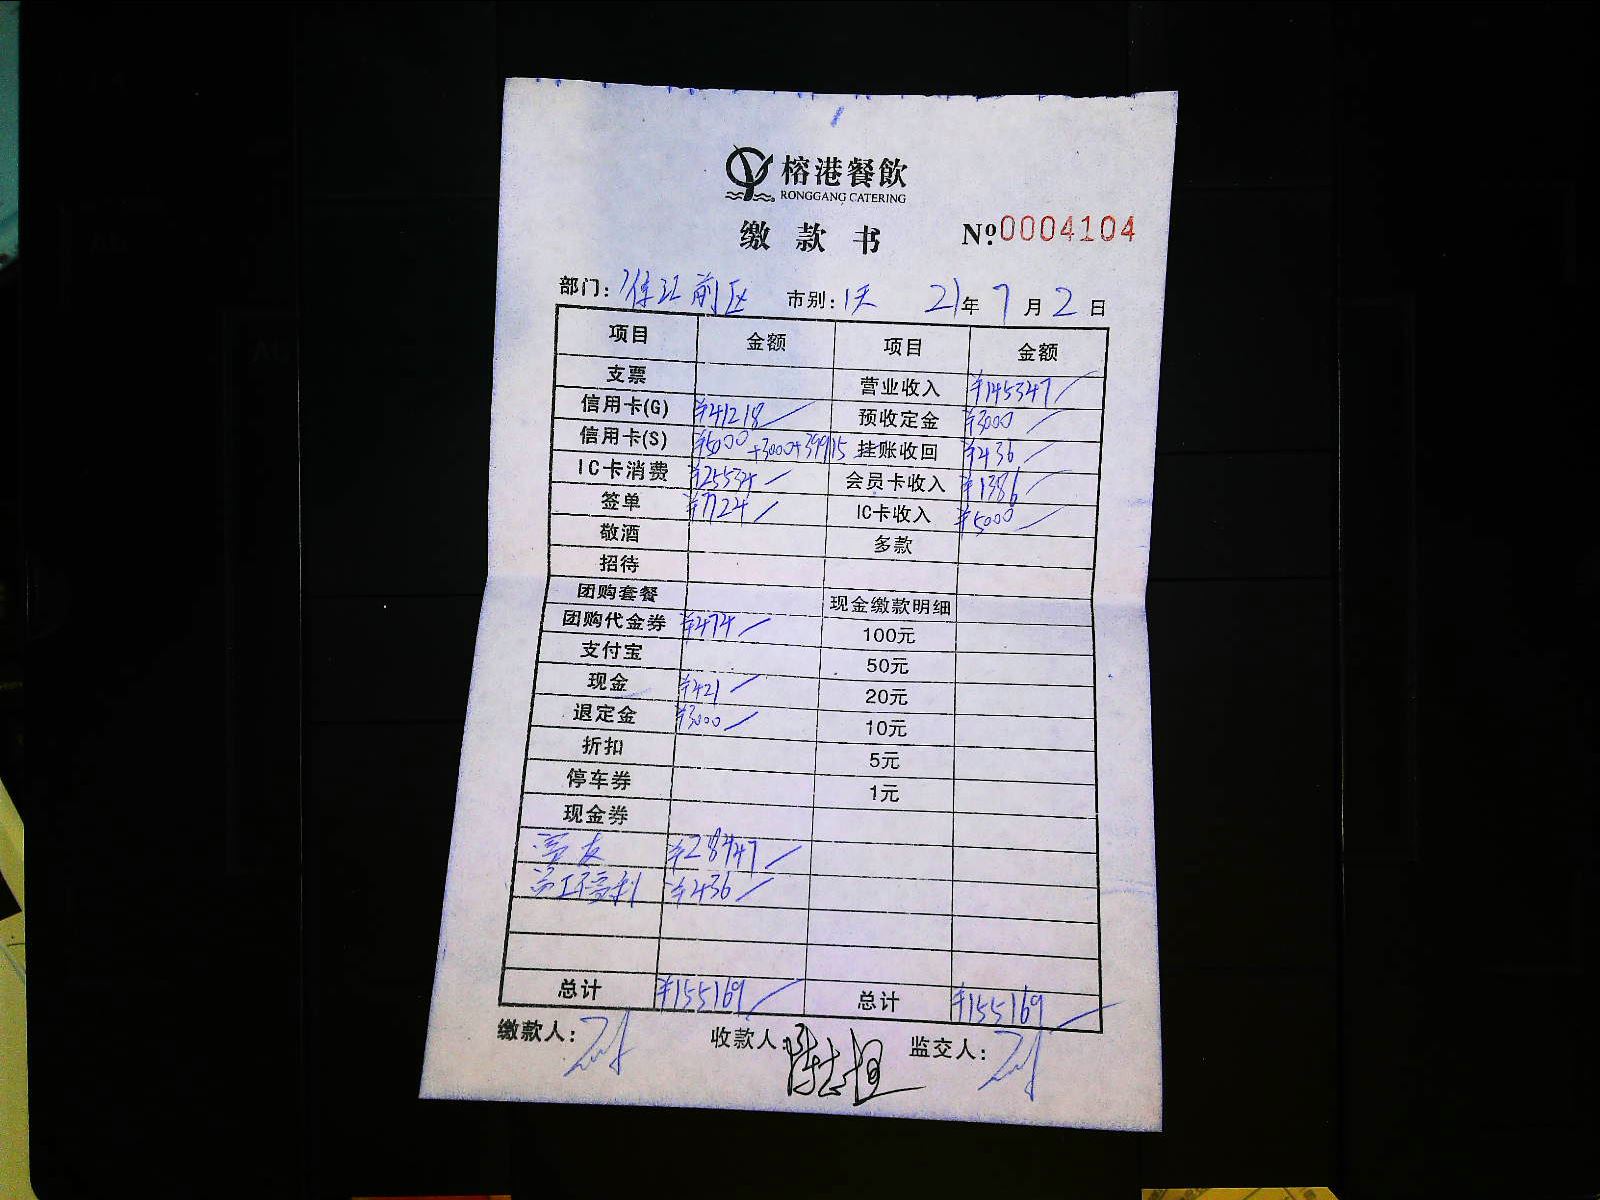 榕港餐飲
RONGGANG CATERING
缴款书 № 0004104
部门: 前区 市别: 1天 21年7月2日
项目 金额 项目 金额
支票 营业收入 ¥145347
信用卡(G) ¥41218 预收定金 ¥3000
信用卡(S) ¥5000+3000+39915 挂账收回 ¥436
IC卡消费 ¥25534 会员卡收入 ¥1386
签单 ¥7724 IC卡收入 ¥5000
敬酒 多款
招待
团购套餐 现金缴款明细
团购代金券 ¥474 100元
支付宝 50元
现金 ¥421 20元
退定金 ¥3000 10元
折扣 5元
停车券 1元
现金券
¥28447
¥436
总计 ¥155169 总计 ¥155169
缴款人: 收款人: 监交人: